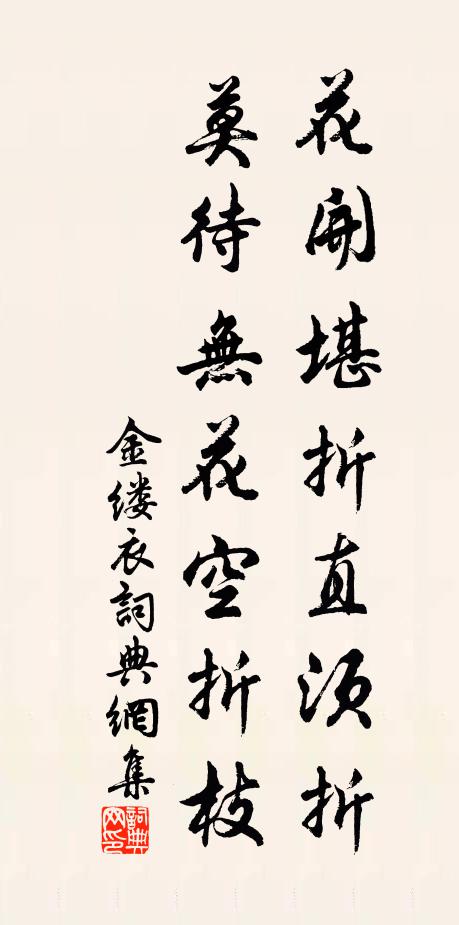 花開堪折直須折
莫待無花空折枝
金缕衣詞典網集
詞典网印